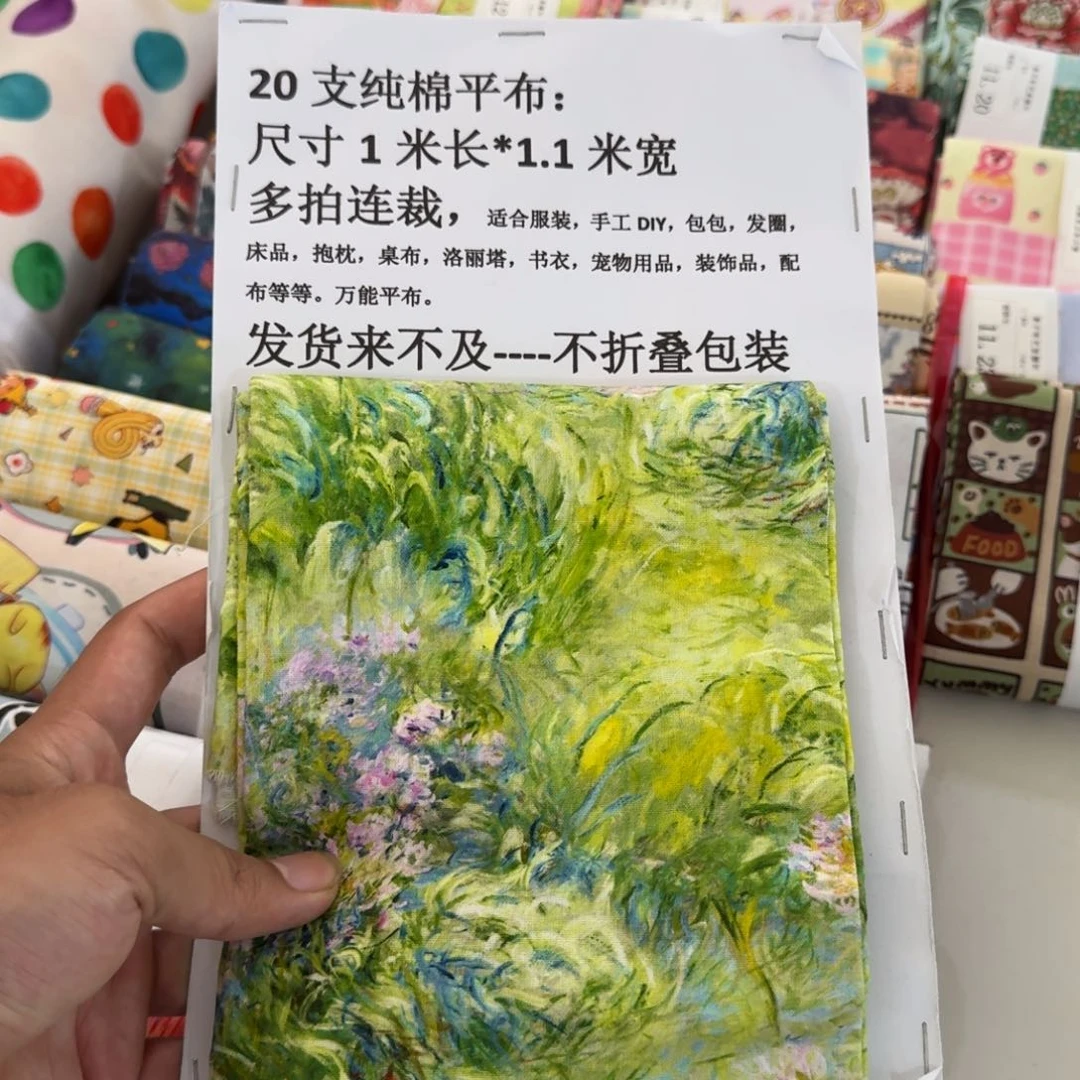 20 支纯棉平布：
尺寸 1 米长*1.1 米宽
多拍连裁，适合服装，手工 DIY，包包，发圈，
床品，抱枕，桌布，洛丽塔，书衣，宠物用品，装饰品，配
布等等。万能平布。
发货来不及----不折叠包装
11.20
11.22
FOOD